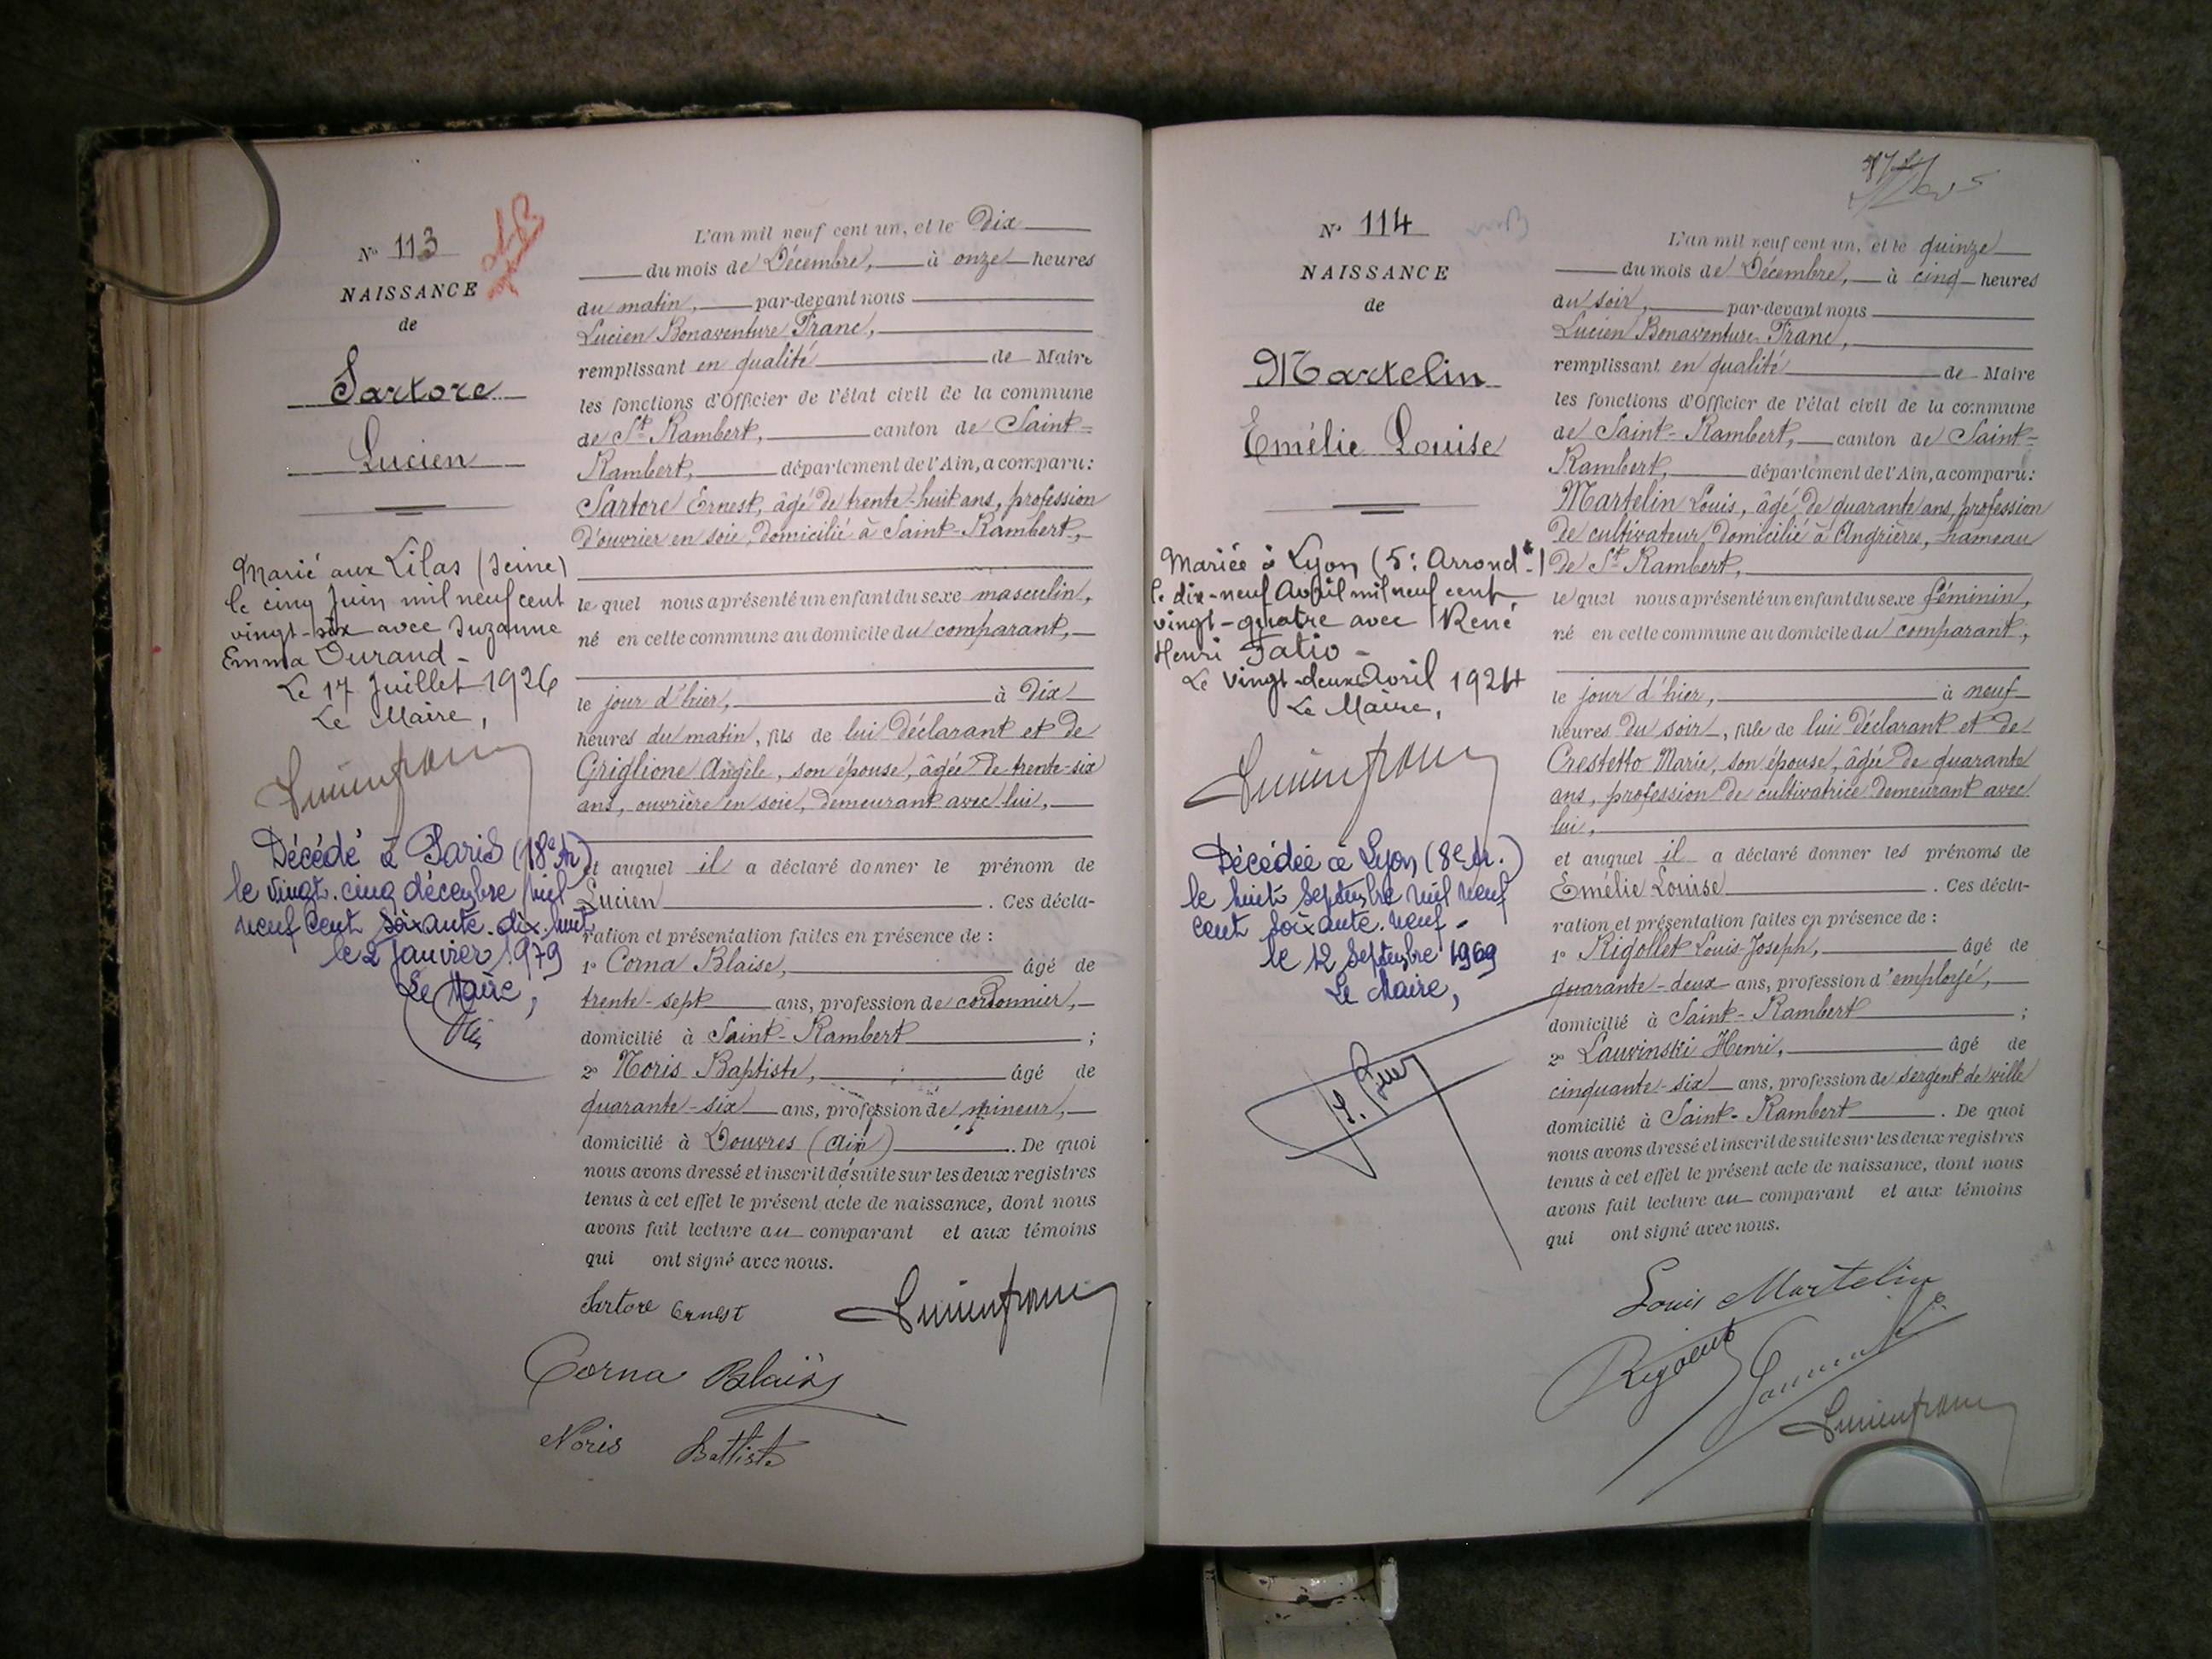 N° 113
NAISSANCE
de
Sartore
Lucien
Marié aux Lilas (Seine)
le cinq Juin mil neuf cent
vingt-six avec Suzanne
Emma Durand -
Le 17 Juillet 1926
Le Maire,
Lucien franc
Décédé à Paris (18e Ar)
le vingt-cinq décembre mil
neuf cent soixante-dix-huit
le 2 Janvier 1979
Le Maire,
L'an mil neuf cent un, et le Dix
du mois de Décembre, à onze heures
du matin, par-devant nous
Lucien Bonaventure Franc,
remplissant en qualité de Maire
les fonctions d'Officier de l'état civil de la commune
de St Rambert, canton de Saint-
Rambert, département de l'Ain, a comparu:
Sartore Ernest, âgé de trente-huit ans, profession
d'ouvrier en soie, domicilié à Saint-Rambert,
le quel nous a présenté un enfant du sexe masculin,
né en cette commune au domicile du comparant,
le jour d'hier, à Dix
heures du matin, fils de lui déclarant et de
Griglione Angèle, son épouse, âgée de trente-six
ans, ouvrière en soie, demeurant avec lui,
et auquel il a déclaré donner le prénom de
Lucien. Ces décla-
ration et présentation faites en présence de :
1° Corna Blaise, âgé de
trente-sept ans, profession de cordonnier,
domicilié à Saint-Rambert ;
2° Noris Baptiste, âgé de
quarante-six ans, profession de mineur,
domicilié à Douvres (Ain). De quoi
nous avons dressé et inscrit de suite sur les deux registres
tenus à cet effet le présent acte de naissance, dont nous
avons fait lecture au comparant et aux témoins
qui ont signé avec nous.
Sartore Ernest Lucien franc
Corna Blaise
Noris Battista
N° 114
NAISSANCE
de
Martelin
Emélie Louise
Mariée à Lyon (5e Arrondt)
le dix-neuf Avril mil neuf cent
vingt-quatre avec René
Henri Fatio -
Le vingt-deux Avril 1924
Le Maire,
Lucien franc
Décédée à Lyon (8e Ar.)
le huit Septembre mil neuf
cent soixante-neuf -
le 12 Septembre 1969
Le Maire,
L'an mil neuf cent un, et le quinze
du mois de Décembre, à cinq heures
du soir, par-devant nous
Lucien Bonaventure Franc,
remplissant en qualité de Maire
les fonctions d'Officier de l'état civil de la commune
de Saint-Rambert, canton de Saint-
Rambert, département de l'Ain, a comparu:
Martelin Louis, âgé de quarante ans, profession
de cultivateur, domicilié à Angrières, hameau
de St Rambert,
le quel nous a présenté un enfant du sexe féminin,
né en cette commune au domicile du comparant,
le jour d'hier, à neuf
heures du soir, fille de lui déclarant et de
Crestetto Marie, son épouse, âgée de quarante
ans, profession de cultivatrice demeurant avec
lui,
et auquel il a déclaré donner les prénoms de
Emélie Louise. Ces décla-
ration et présentation faites en présence de :
1° Rigollet Louis-Joseph, âgé de
quarante-deux ans, profession d'employé,
domicilié à Saint-Rambert ;
2° Lauvinski Henri, âgé de
cinquante-six ans, profession de sergent de ville
domicilié à Saint-Rambert. De quoi
nous avons dressé et inscrit de suite sur les deux registres
tenus à cet effet le présent acte de naissance, dont nous
avons fait lecture au comparant et aux témoins
qui ont signé avec nous.
Louis Martelin
Rigollet
Lucien franc